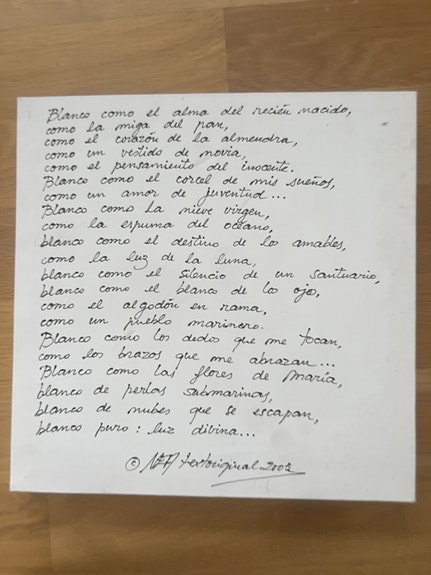 Blanco como el alma del recién nacido,
como la miga del pan,
como el corazón de la almendra,
como un vestido de novia,
como el pensamiento del inocente.
Blanco como el corcel de mis sueños,
como un amor de juventud...
Blanco como la nieve virgen,
como la espuma del océano,
blanco como el destino de los amables,
como la luz de la luna,
blanco como el silencio de un santuario,
blanco como el blanco de los ojos,
como el algodón en rama,
como un pueblo marinero.
Blanco como los dedos que me tocan,
como los brazos que me abrazan...
Blanco como las flores de María,
blanco de perlas submarinas,
blanco de nubes que se escapan,
blanco puro: luz divina...
© textoriginal 2002